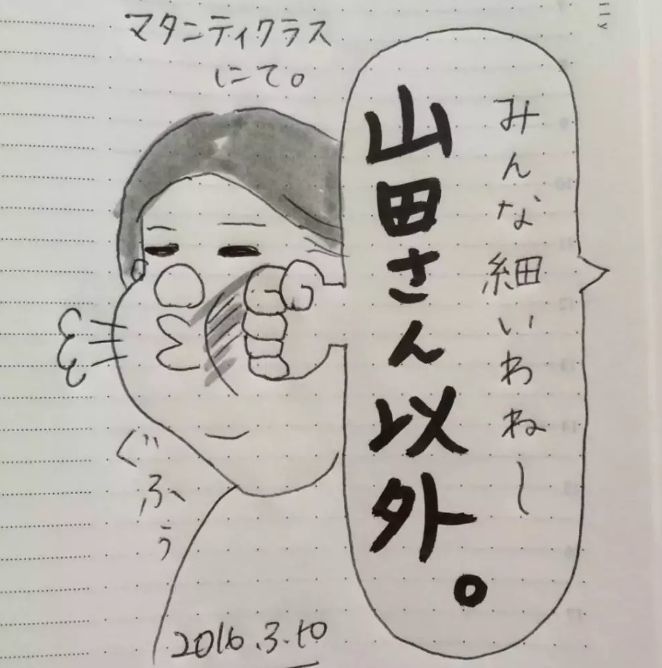 マタニティクラス
にて。
みんな細いわね〜
山田さん以外。
ぐふぅ
2016.3.10